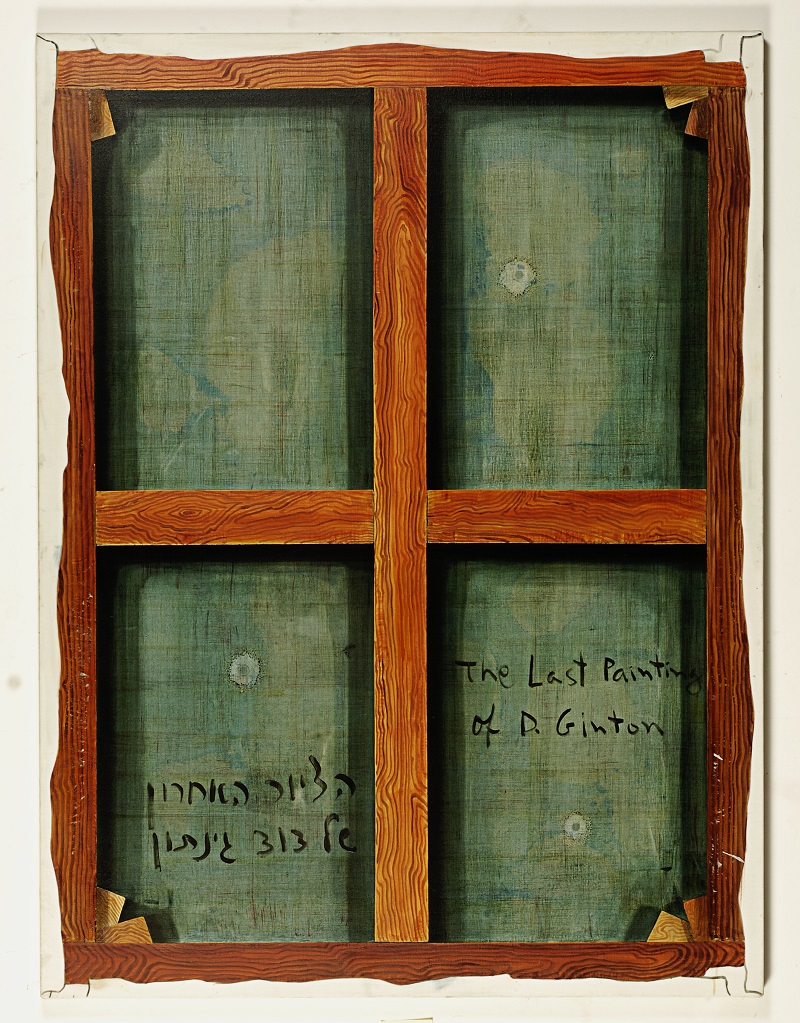 The Last Painting
of D. Ginton
הציור האחרון
של דוד גינתון